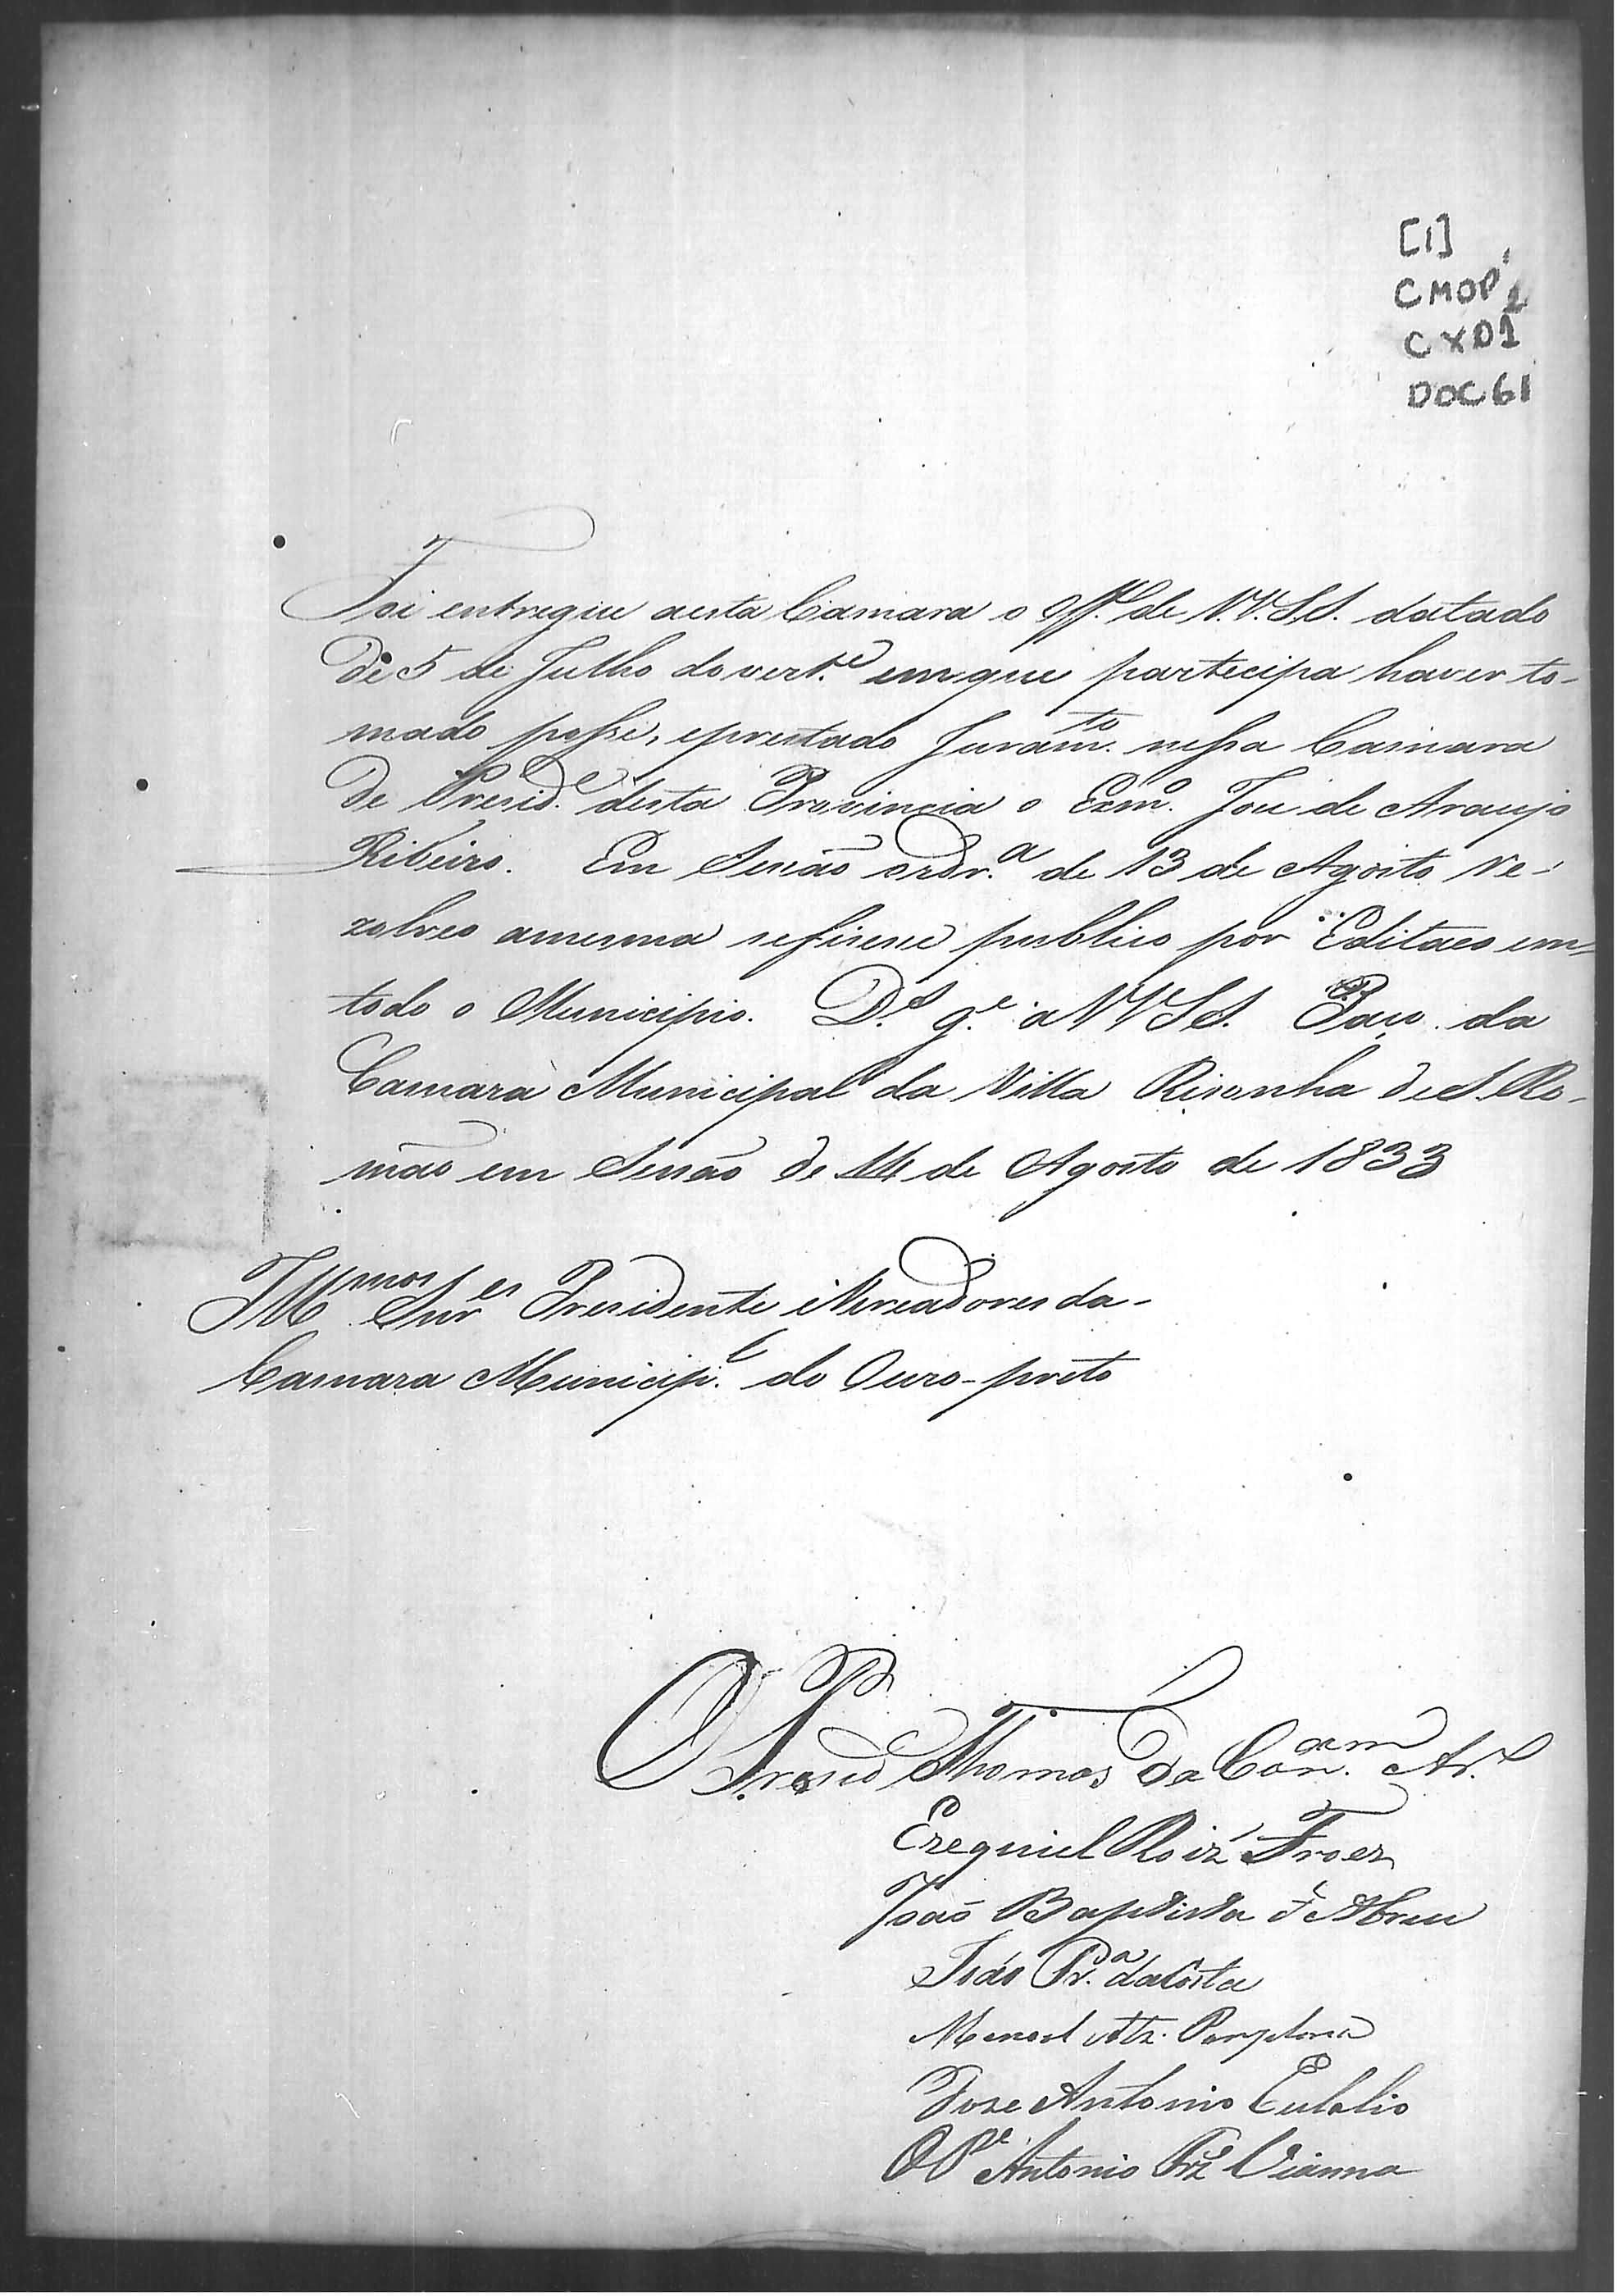 [1]
CMOP
CX01
DOC 61
Foi entregue aesta Camara o Off.º de V.V.S.S. datado
de 5 de Julho do vert.e emque partecipa haver to-
mado posse, eprestado Juram.to nessa Camara
de Presid.e desta Provincia o Exm.º Jose de Araujo
Ribeiro. Em Sessão ordr.a de 13 de Agosto re-
zolveo amesma sefisese publico por Editaes em
todo o Municipio. D.s g.e a VVSS. Paço da
Camara Municipal da Villa Risonha de S. Ro-
mão em Sessão de 14 de Agosto de 1833
Ill.mos Snr.es Presidente e Vereadores da
Camara Municip.l do Ouro-preto
O Presid Thomas da
Ezequiel Roiz Froes
João Baptista d'Abreu
João Pr.a daCosta
Manoel Alz. Pamplona
Jose Antonio Eulalio
O P.e Antonio Frz Vianna